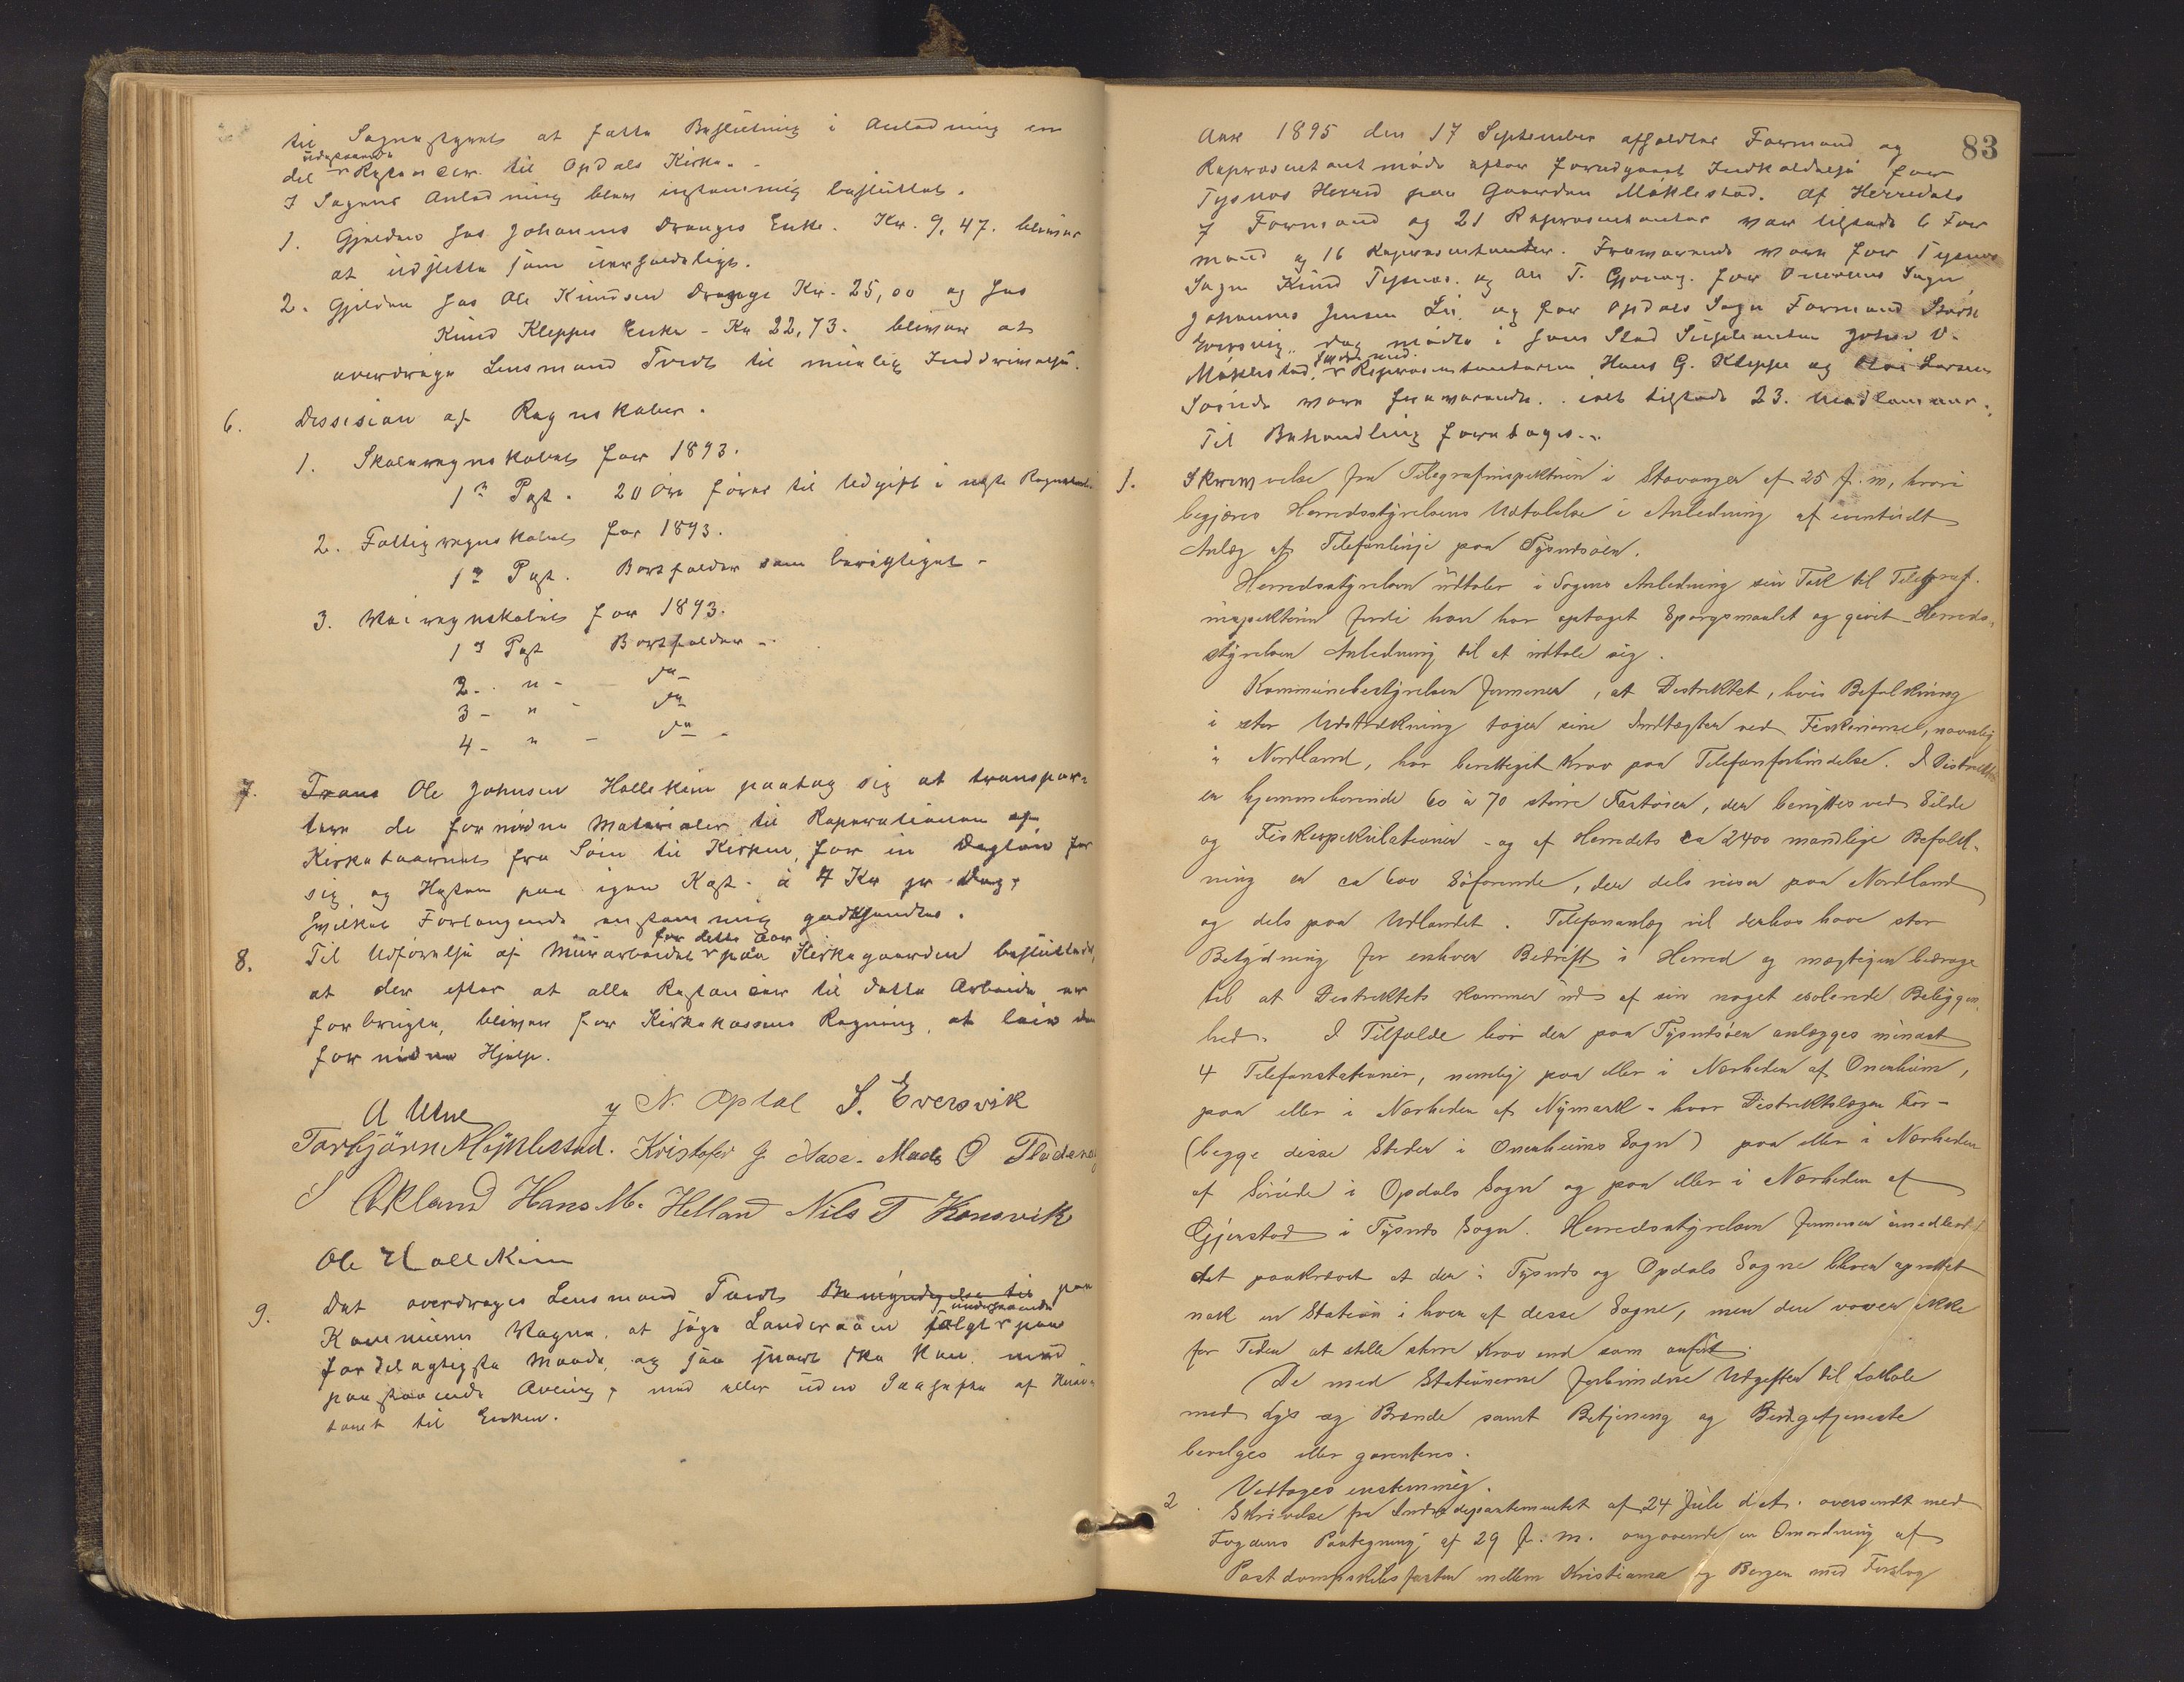 til Sognestyret at fatte Beslutning i Anledning en
del udestaaende Restancer til Opdals Kirke.
I Sagens Anledning blev enstemmig besluttet.
1. Gjelden hos Johannes Dranges Enke. Kr. 9,47. bliver
at udslette som uerholdelige.
2. Gjelden hos Ole Knudsen Drange Kr. 25,00 og hos
Knud Kleppes Enke - Kr 22,73. bliver at
overdrage Lensmand Tvedt til mulig Inddrivelse.
6. Dessision af Regnskaber.
1. Skoleregnskabet for 1893.
1ste Post. 20 Øre føres til Udgift i neste Regnskab
2. Fattigregnskabet for 1893.
1ste Post. Bortfalder som berigtiget -
3. Veiregnskabet for 1893.
1ste Post Bortfalder -
2 - " - do -
3 - " - do
4 - " - do -
7. Ole Johnsen Hallekim paatog sig at transpor-
tere de fornødne Materialer til Reperationen af
Kirketaarnet fra Søen til Kirken, for en Dagløn for
sig og Hesten paa egen Kost. a 4 Kr pr Dag.
Hvilket Forlangende enstemmig godkjendtes.
8. Til Udførelse af Murarbeidet for dette Aar paa Kirkegaarden besluttedes,
at der efter at alle Restancer til dette Arbeide er
forbrugte, bliver for Kirkekassens Regning, at leie den
fornødne Hjelp.
A Utne N. Opdal S. Eversvik
Torbjørn Møklestad. Kristofer J Aase. Mads O Flades
S Økland Hans M. Helland Nils T Konsvik
Ole Hallekim
9. Det overdrages Lensmand Tvedt Bemyndigelse til paa
Kommunens Vegne, at søge Landerøen solgt underhaanden paa
fordelagtigste Maade, og saa snart ske kan, med
paastaaende Avling, med eller uden Paahefte af
tønet til Enken.
83
Aar 1895 den 17 September afholdtes Formand og
Repræsentantmøde efter forudgaaet Indkaldelse for
Tysnes Herred paa Gaarden Møklestad. Af Herredets
7 Formænd og 21 Repræsentanter var tilstede 6 For
mænd og 16 Repræsentanter. Fraværende vare for Tysnes
Sogn Knud Tysnes. og An T. Gjerøy. for Onerems Sogn,
Johannes Jensen Lie. og for Opdals Sogn Formand
Eversvig, dog mødte i hans Sted Suppleanten Johan O.
Møklestad, samt med Repræsentanterne Hans G. Kleppe og Larsen
Sørude vare fraværende. ialt tilstede 23. Medlemmer.
Til Behandling foretoges.
1. Skrivvelse fra Telegrafinspektøren i Stavanger af 25 f. m, hvori
begjæres Herredsstyrelsens Udtalelse i Anledning af eventuelt
Anlæg af Telefonlinje paa Tysnesøen.
Herredsstyrelsen udtaler i Sagens Anledning sin Tak til Telegraf.
inspektøren fordi han har optaget Spørgsmaalet og givet Herreds-
styrelsen Anledning til at udtale sig.
Kommunebestyrelsen formener, at Distriktet, hvis Befolkning
i stor Udstrækning tager sine Indtægter ved Fiskerierne, navnlig
i Nordland, har berettiget Krav paa Telefonforbindelse. I Distriktet
er hjemmehørende 60 à 70 større Fartøier, der benyttes ved Silde
og Fiskespekulationer - og af Herredets ca 2400 mandlige Befolk-
ning er ca 600 Søfarende, der dels reiser paa Nordland
og dels paa Udlandet. Telefonanlæg vil derhos have stor
Betydning for enhver Bedrift i Herred og mægtigen bidrage
til at Distriktets kommer ud af sin noget isolerede Beliggen-
hed. I Tilfælde bør der paa Tysnesøen anlægges mindst
4 Telefonstationer, nemlig paa eller i Nærheden af Onerheim,
paa eller i Nærheden af Nymark - hvor Distriktslægen bor -
(begge disse Steder i Onerheims Sogn) paa eller i Nærheden
af Sørude i Opdals Sogn og paa eller i Nærheden af
Gjerstad i Tysnes Sogn. Herredsstyrelsen formener imedlertid
det paakrævet at der i Tysnes og Opdals Sogne bliver oprettet
nok en Station i hver af disse Sogne, men der vover ikke
for Tiden at stille større Krav end som anført.
De med Stationerne forbundne Udgifter til Lokale
med Lys og Brænde samt Betjening og Budgetjeneste
bevilges eller garanteres.
Vedtages enstemmig.
2. Skrivelse fra Indredepartementet af 24 Juli d. A. oversendt med
Fogdens Paategning af 29 f. m. angaaende en Omordning af
Postdampskibsfarten mellem Kristiania og Bergen med Forslag